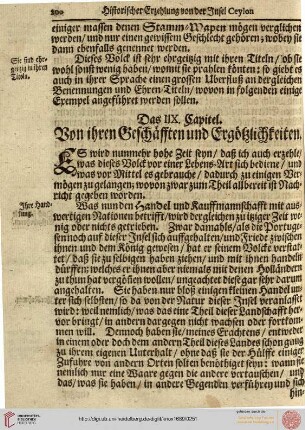 200 Historischer Erzehlung von der Insel Ceylon
einiger massen denen Stamm-Wapen mögen verglichen
werden/ und nur einen gewissen Geschlecht gehören; wobey sie
dann ebenfalls genennet werden.
Sie sind ehr-
geitzig in ihren
Tituln.
Dieses Volck ist sehr ehrgeitzig mit ihren Tituln/ ob sie
wohl sonst wenig haben/ womit sie prahlen können: so giebt es
auch in ihrer Sprache einen grossen Uberfluß an dergleichen
Benennungen und Ehren-Titeln/ wovon in folgenden einige
Exempel angeführet werden sollen.
Das IIX. Capitel.
Von ihren Geschäfften und Ergötzlichkeiten.
ES wird nunmehr hohe Zeit seyn/ daß ich auch erzehle/
was dieses Volck vor einer Lebens-Art sich bediene/ und
was vor Mittel es gebrauche/ dadurch zu einigen Ver-
mögen zu gelangen; wovon zwar zum Theil allbereit ist Nach-
richt gegeben worden.
Ihre Hand-
lung.
Was nun den Handel und Kauffmannschafft mit aus-
wertigen Nationen betrifft/ wird dergleichen zu itziger Zeit we-
nig oder nichts getrieben. Zwar damahls/ als die Portuge-
sen noch auf dieser Insel sich aufgehalten/ und Friede zwischen
ihnen und dem König gewesen/ hat er seinem Volcke verstat-
tet/ daß sie zu selbigen haben ziehen/ und mit ihnen handeln
dürffen; welches er ihnen aber niemals mit denen Holländern
zu thun hat vergönnen wollen/ ungeachtet diese gar sehr darum
angehalten. Sie haben nur bloß einigen kleinen Handel un-
ter sich selbsten/ so da von der Natur dieser Insel veranlasset
wird: weil nemlich/ was das eine Theil dieser Landschafft her-
vor bringt/ in andern dargegen nicht wachsen oder fortkom-
men will. Dennoch haben sie/ meines Erachtens/ entweder
in einem oder doch dem andern Theil dieses Landes schon gnug
zu ihrem eigenen Unterhalt/ ohne daß sie der Hülffe einiger
Zufuhre von andern Orten solten benöthiget seyn: wann sie
nemlich nur eine Waare gegen die andere vertauschen/ und
das/ was sie haben/ in andere Gegenden verführen und sich
hin-